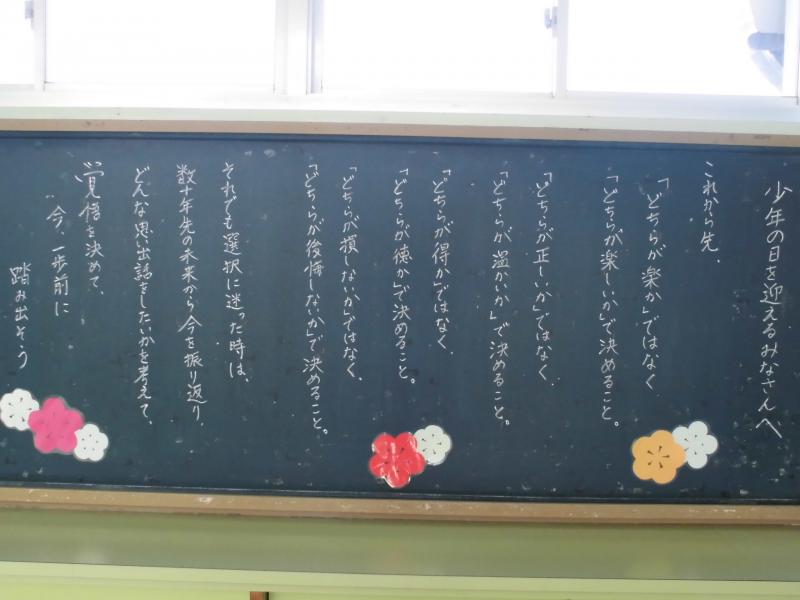 少年の日を迎えるみなさんへ
これから先、
「どちらが楽か」ではなく
「どちらが楽しいか」で決めること。
「どちらが正しいか」ではなく
「どちらが温かいか」で決めること。
「どちらが得か」ではなく
「どちらが徳か」で決めること。
「どちらが損しないか」ではなく、
「どちらが後悔しないか」で決めること。
それでも選択に迷った時は、
数十年先の未来から今を振り返り、
どんな思い出話をしたいかを考えて、
覚悟を決めて、
今、一歩前に
踏み出そう